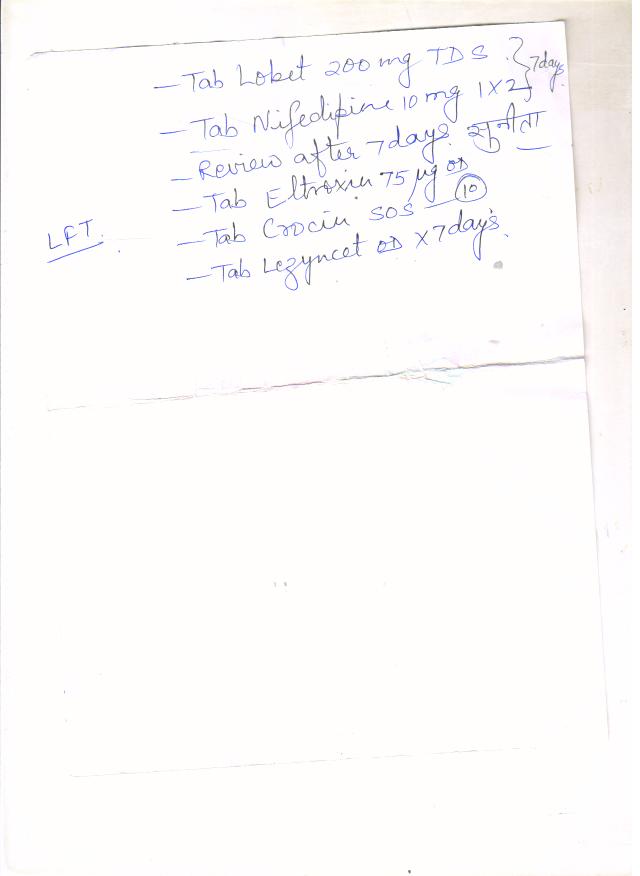 — Tab Lobet 200 mg TDS } 7 days.
— Tab Nifedipine 10 mg 1 X 2
— Review after 7 days. सुनीता
— Tab Eltroxin 75 µg OD
LFT. — Tab Crocin SOS — 10
— Tab Lezyncet OD X 7 days.